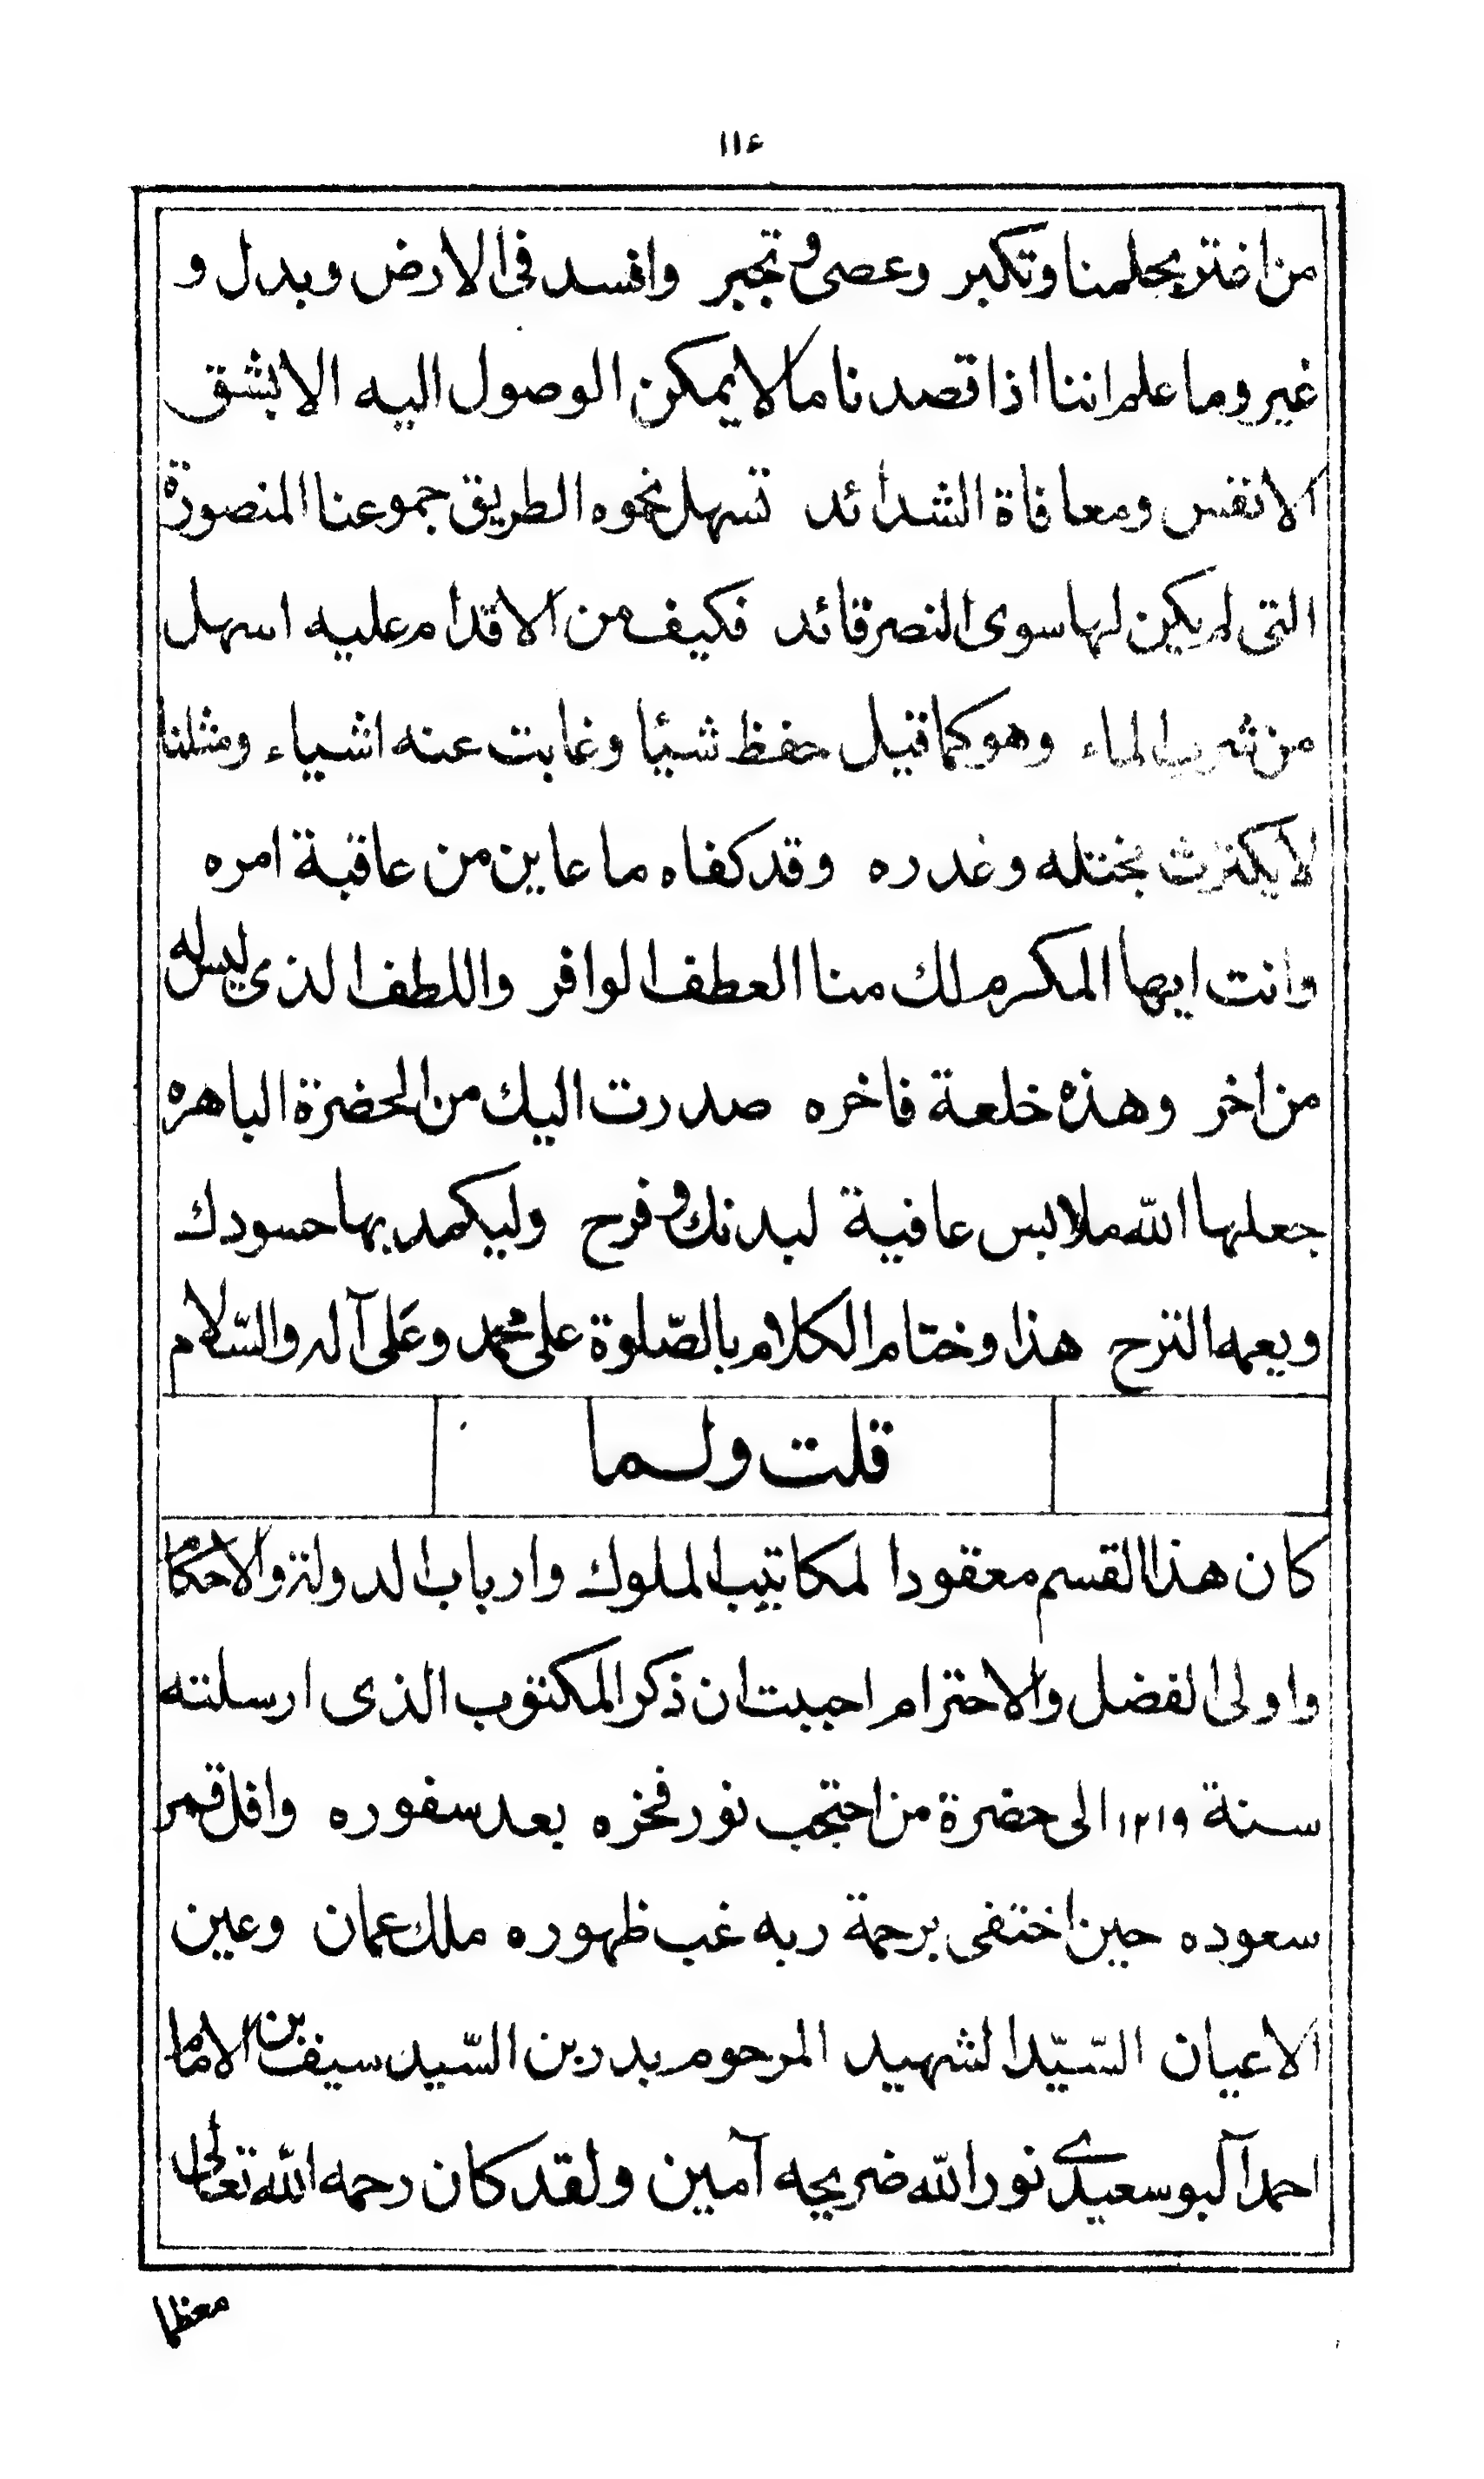 ١١٤
من اغتر بحلمنا وتكبر وعصى وتجبر وافسد فى الارض وبدل و
غير وما علم اننا اذا قصدنا ما لا يمكن الوصول اليه الا بشق
الانفس ومعافاة الشدائد تسهل نحوه الطريق جموعنا المنصورة
التى لم يكن لها سوى النصر قائد فكيف من الاقدام عليه اسهل
من شرب الماء وهو كما قيل حفظ شيئا وغابت عنه اشياء ومثلنا
لا يكترث بختله وغدره وقد كفاه ما عاين من عاقبة امره
وانت ايها المكرم لك منا العطف الوافر واللطف الذى ليس له
من اخر وهذه خلعة فاخره صدرت اليك من الحضرة الباهره
جعلها الله ملابس عافية لبدنك وفرح وليكمد بها حسودك
ويعمه الترح هذا وختام الكلام بالصّلوة على محمد وعَلى آله والسّلام
قلت ولما
كان هذا القسم معقودا لمكاتيب الملوك وارباب الدولة والاحكام
واولى الفضل والاحترام احببت ان ذكر المكتوب الذى ارسلته
سنة ١٢١٩ الى حضرة من احتجب نور فخره بعد سفوره وافل قمر
سعوده حين اختفى برحمة ربه غب ظهوره ملك عمان وعين
الاعيان السّيّد الشهيد المرحوم بدر بن السّيد سيف بن الامام
احمد آلبوسعيدي نور الله ضريحه آمين ولقد كان رحمه الله تعالى
معظما